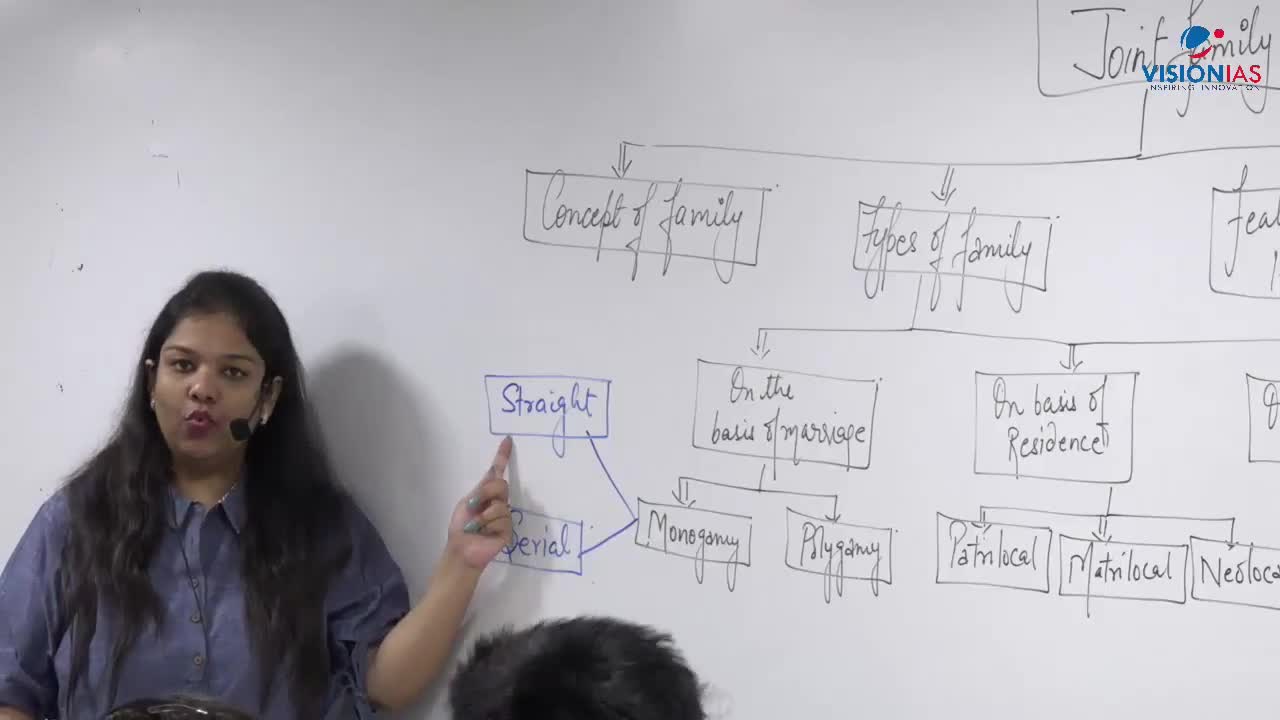 Joint family
VISIONIAS
INSPIRING INNOVATION
Concept of family
Types of family
Straight
On the
basis of marriage
On basis of
Residence
Serial
Monogamy
Polygamy
Patrilocal
Matrilocal